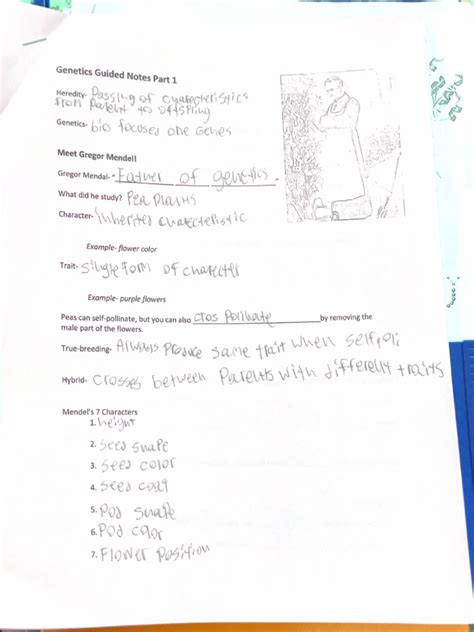 Genetics Guided Notes Part 1
Heredity- Passing of characteristics
from Parent to offspring
Genetics- bio focoses one Genes
Meet Gregor Mendel!
Gregor Mendal-"Father of genetics.
What did he study? Pea Plants
Character- inherited characteristic
Example- flower color
Trait- Single form of charecter
Example- purple flowers
Peas can self-pollinate, but you can also cros Pollinate by removing the
male part of the flowers.
True-breeding- Always Produce same trait when selfpoli
Hybrid- Crosses between Parents with different traits
Mendel's 7 Characters
1. height
2. Seed shape
3. Seed color
4. Seed coat
5. Pod shape
6. Pod color
7. Flower Position